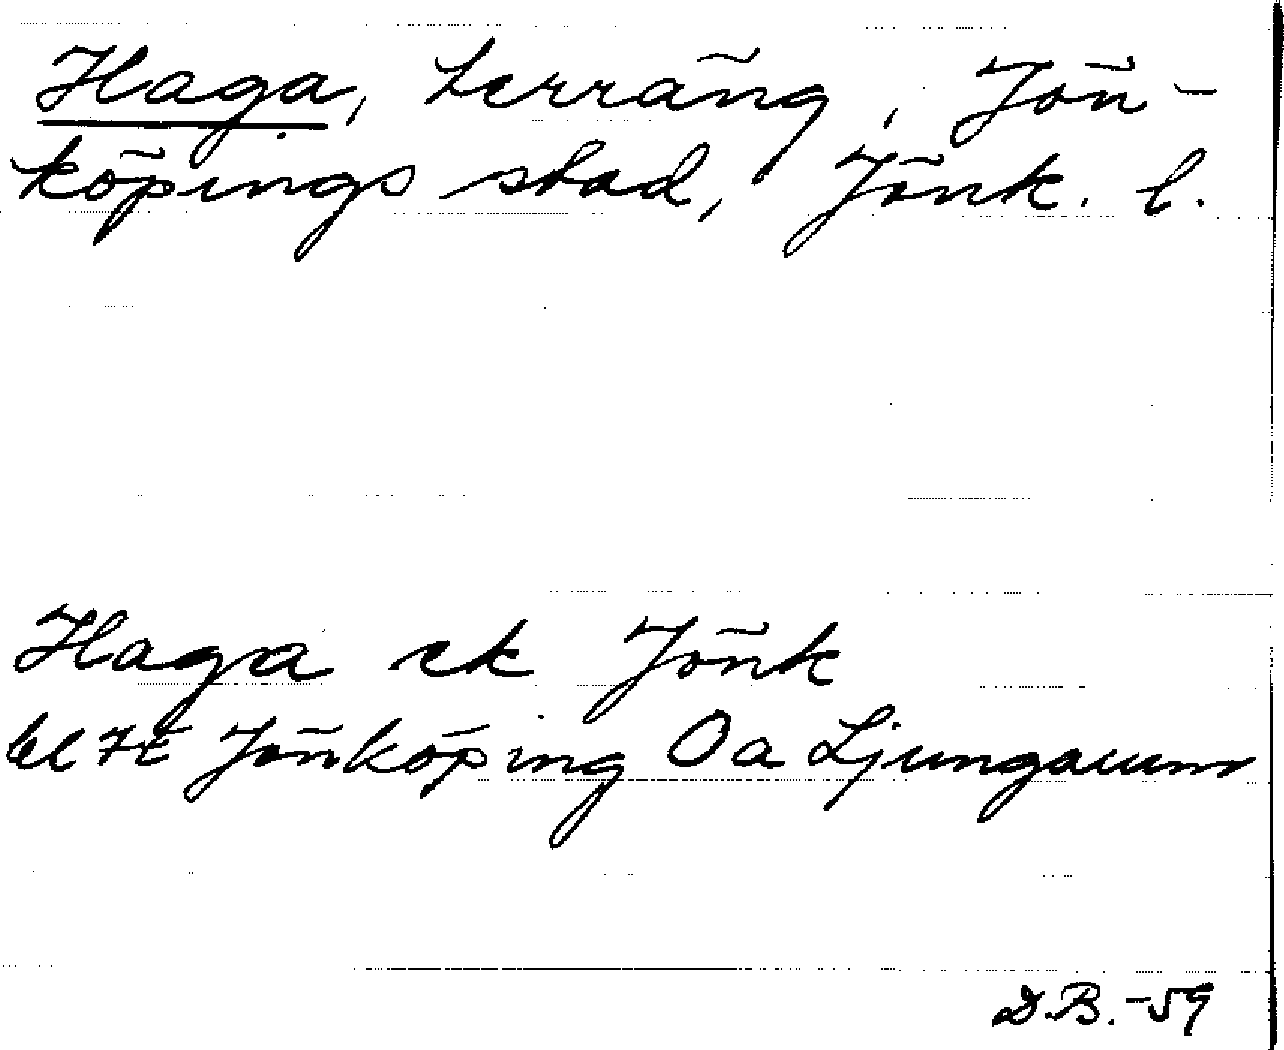 Haga, terräng, Jön-
köpings stad, Jönk. l.
Haga ek Jönk
bl 7E Jönköping Oa Ljungarum
D.B. -59